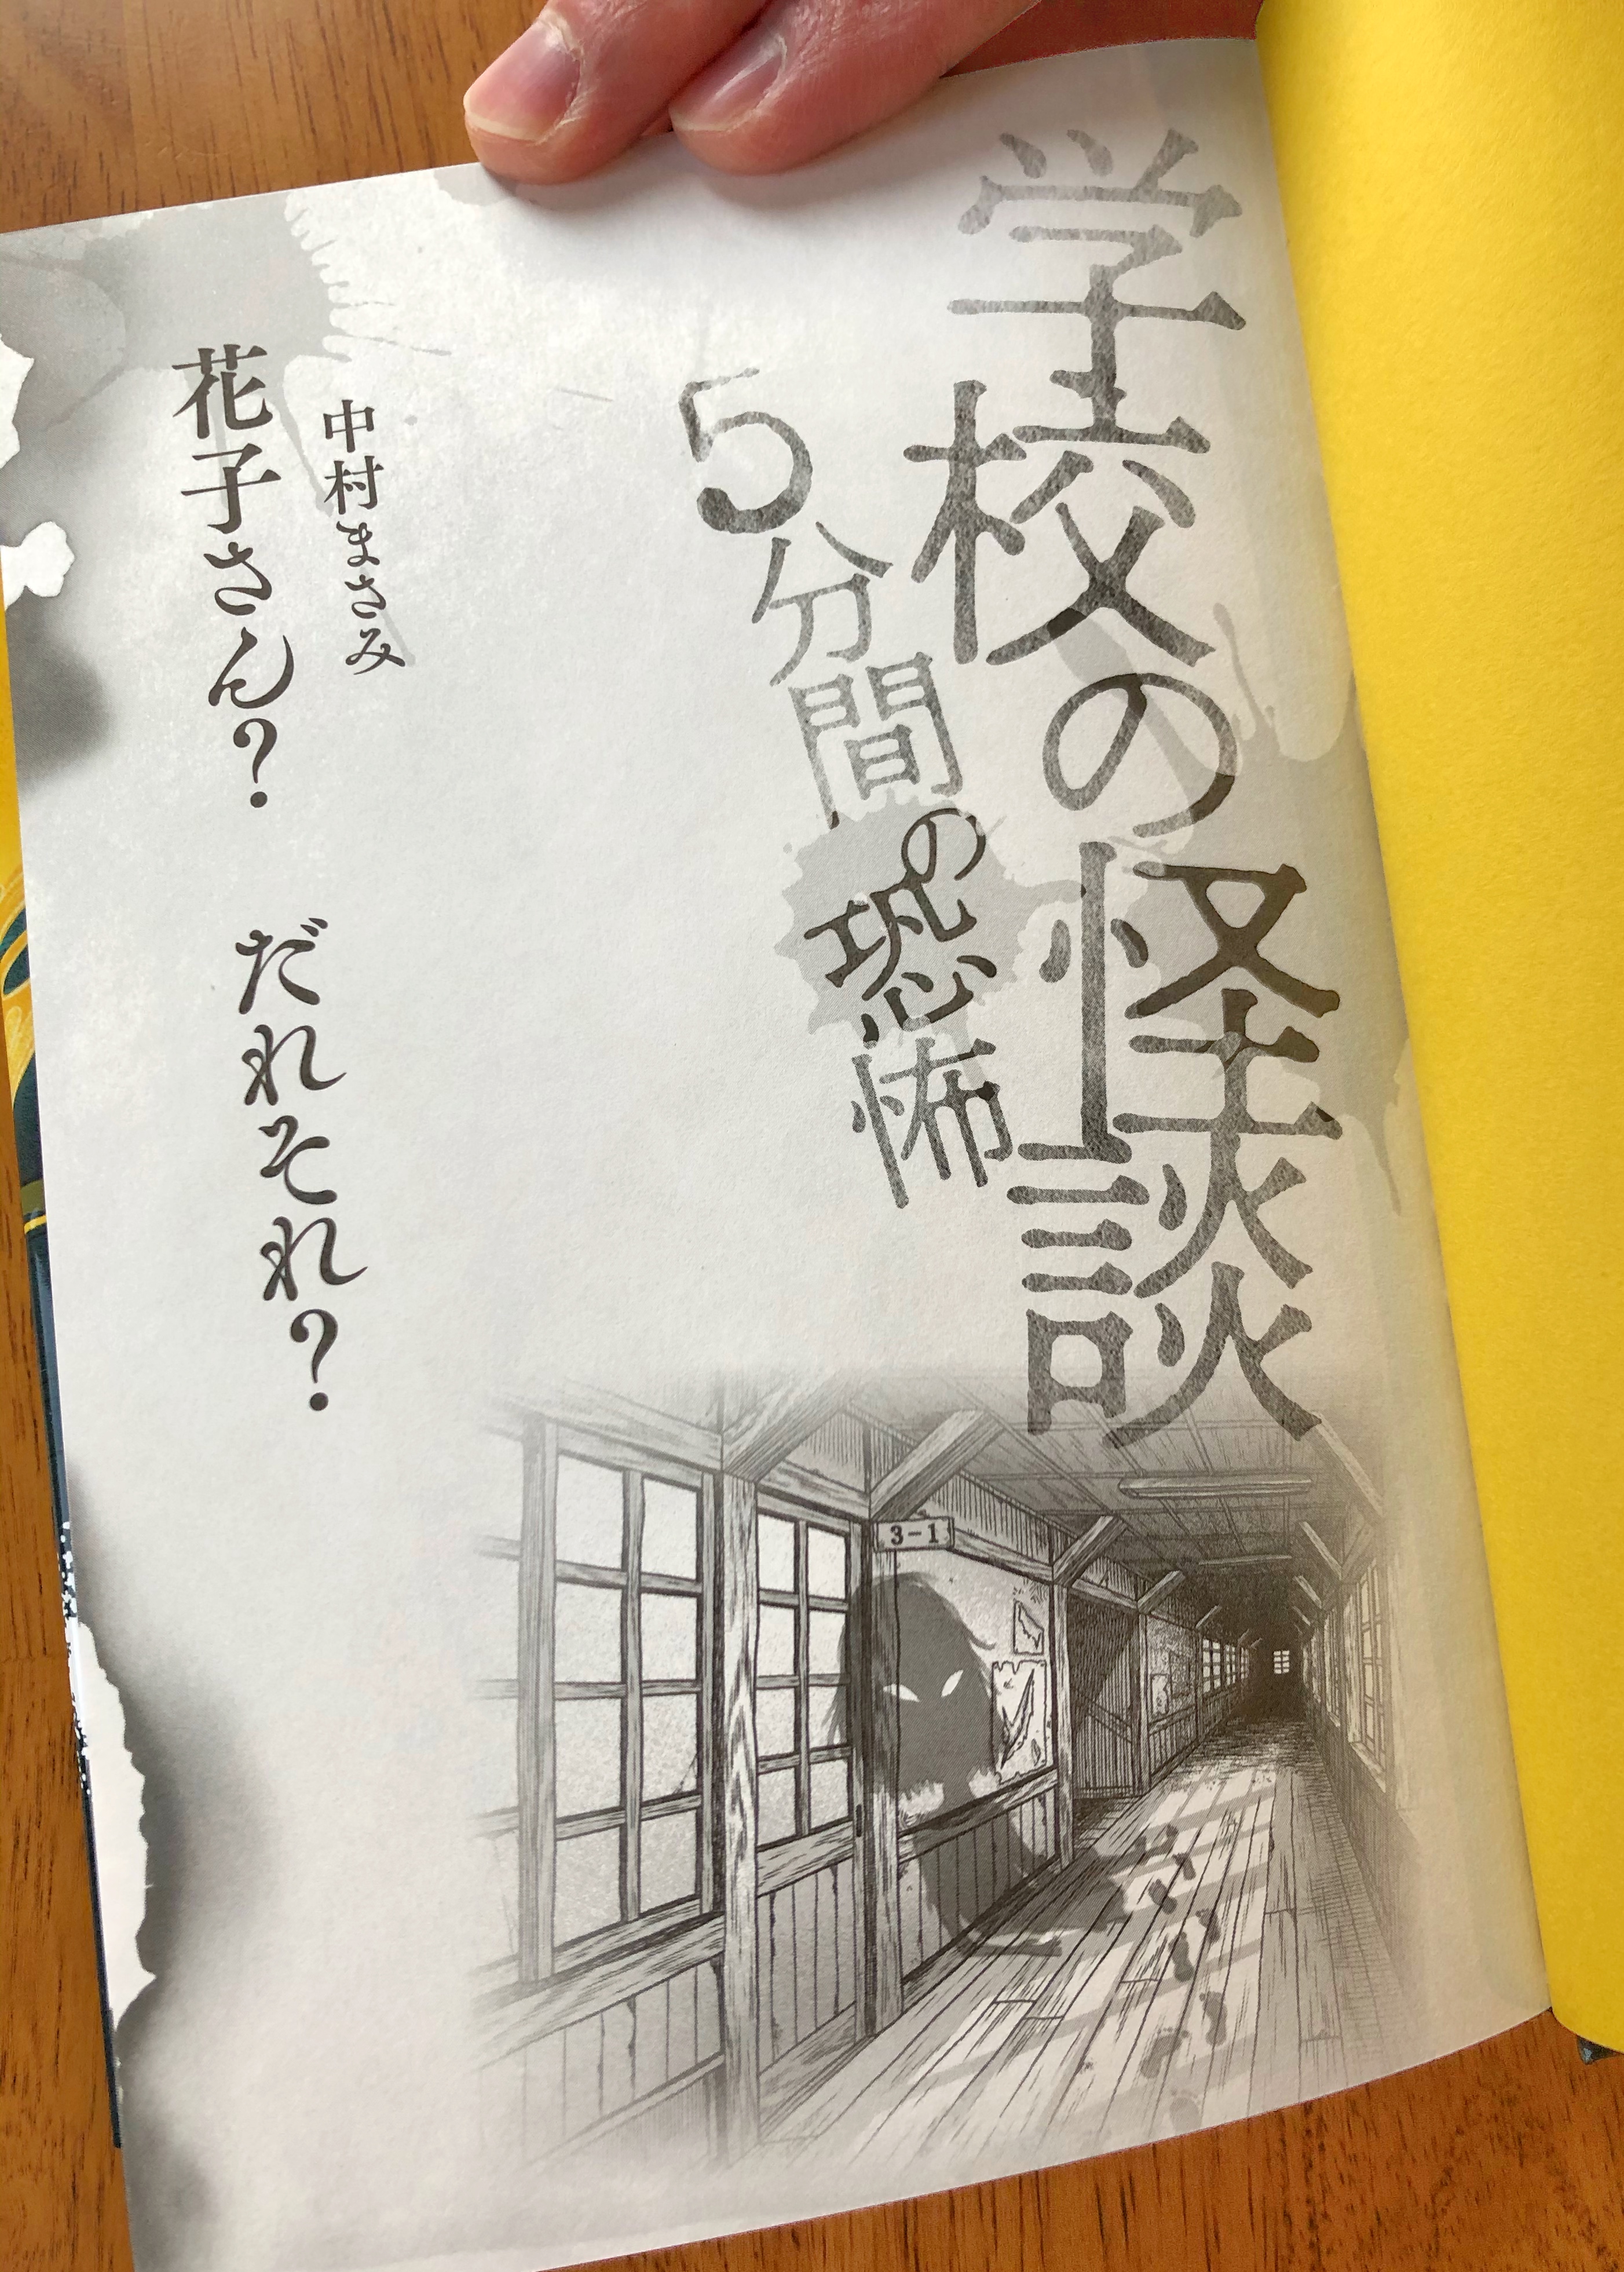 学校の怪談
5分間の恐怖
中村まさみ
花子さん? だれそれ?
3-1